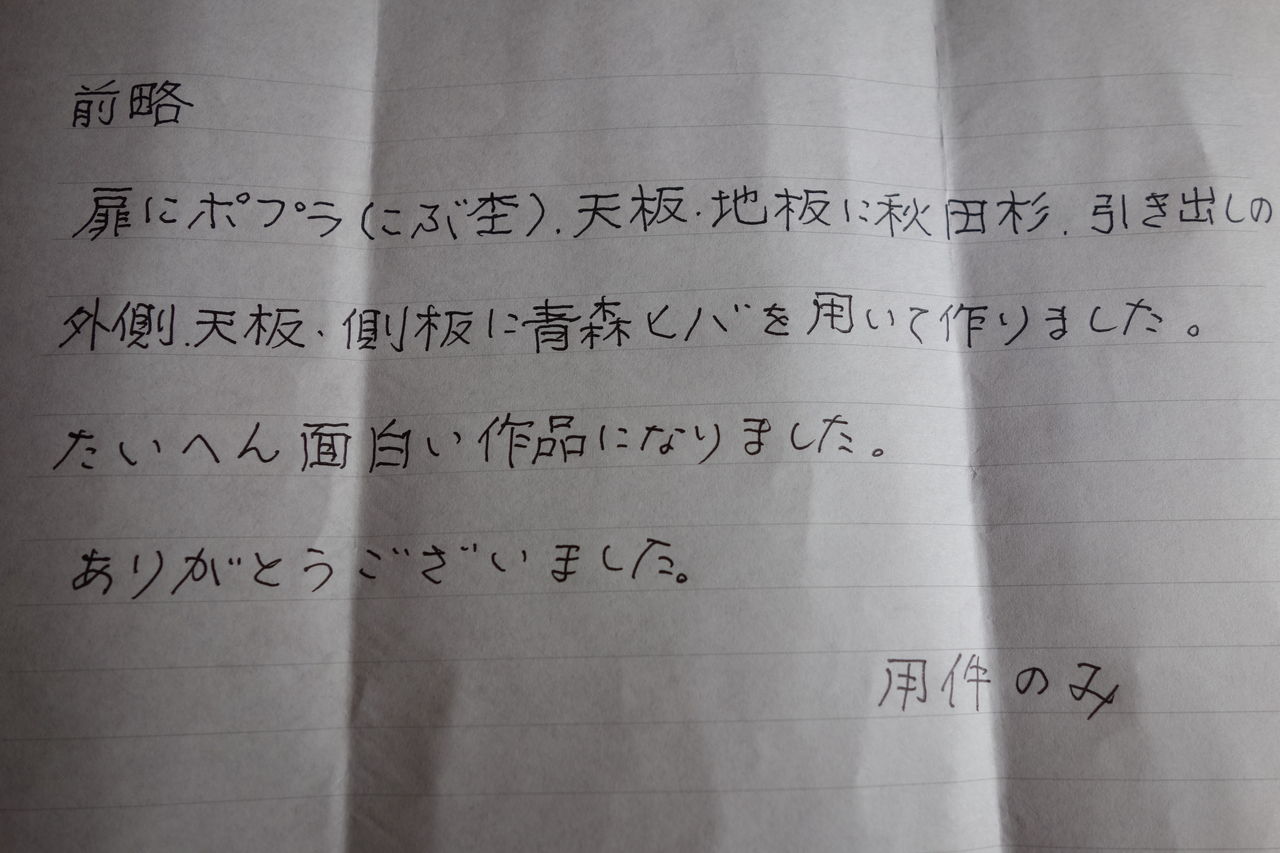 前略
扉にポプラ(こぶ杢).天板.地板に秋田杉.引き出しの
外側.天板.側板に青森ヒバを用いて作りました。
たいへん面白い作品になりました。
ありがとうございました。
用件のみ